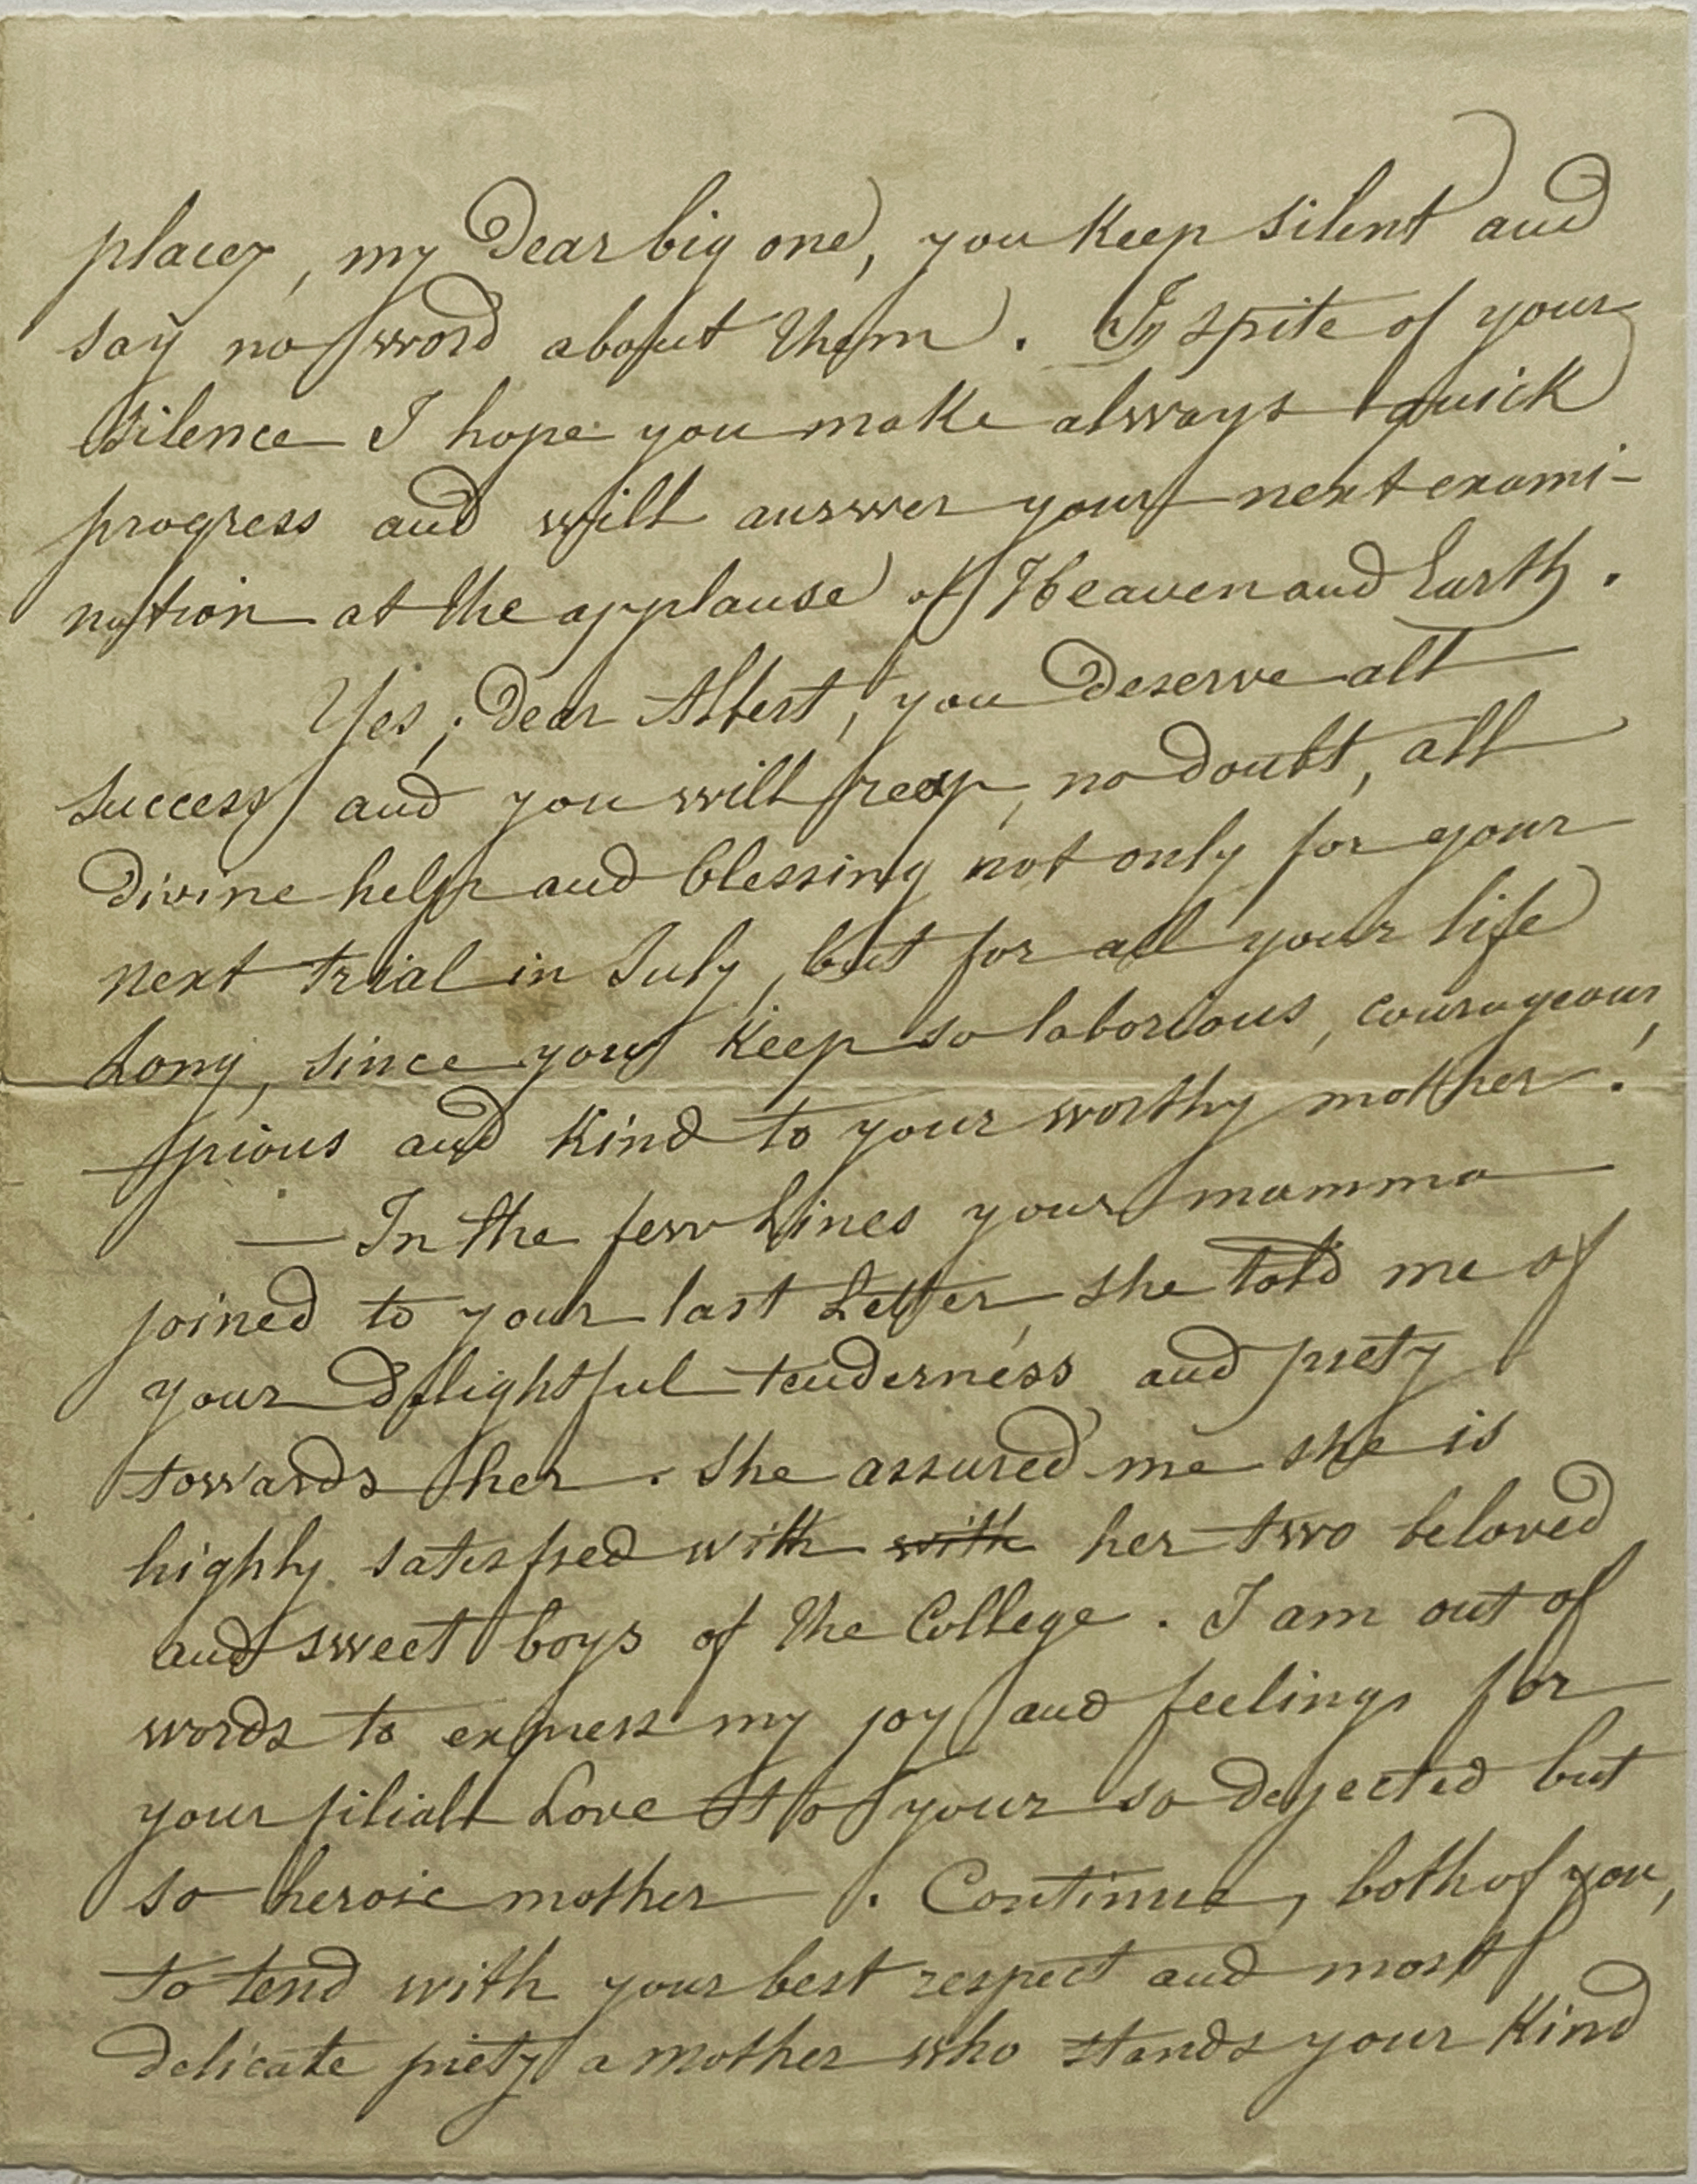 places, my Dear big one, you Keep silent and
say no word about them. In spite of your
silence I hope you make always quick
progress and will answer your next exami-
nation at the applause of Heaven and Earth.
Yes, Dear Albert, you Deserve all
success and you will reap, no doubt, all
Divine help and blessing not only for your
next trial in July, but for all your life
Long, since you Keep so laborious, courageous,
pious and Kind to your worthy mother.
— In the few Lines your mamma
joined to your last Letter, she told me of
your Delightful tenderness and piety
towards her. She assured me she is
highly satisfied with ~~with~~ her two beloved
and sweet boys of the College. I am out of
words to express my joy and feelings for
your filiall Love to your so dejected but
so heroic mother. Continue, both of you,
to tend with your best respect and most
delicate piety a mother who stands your Kind